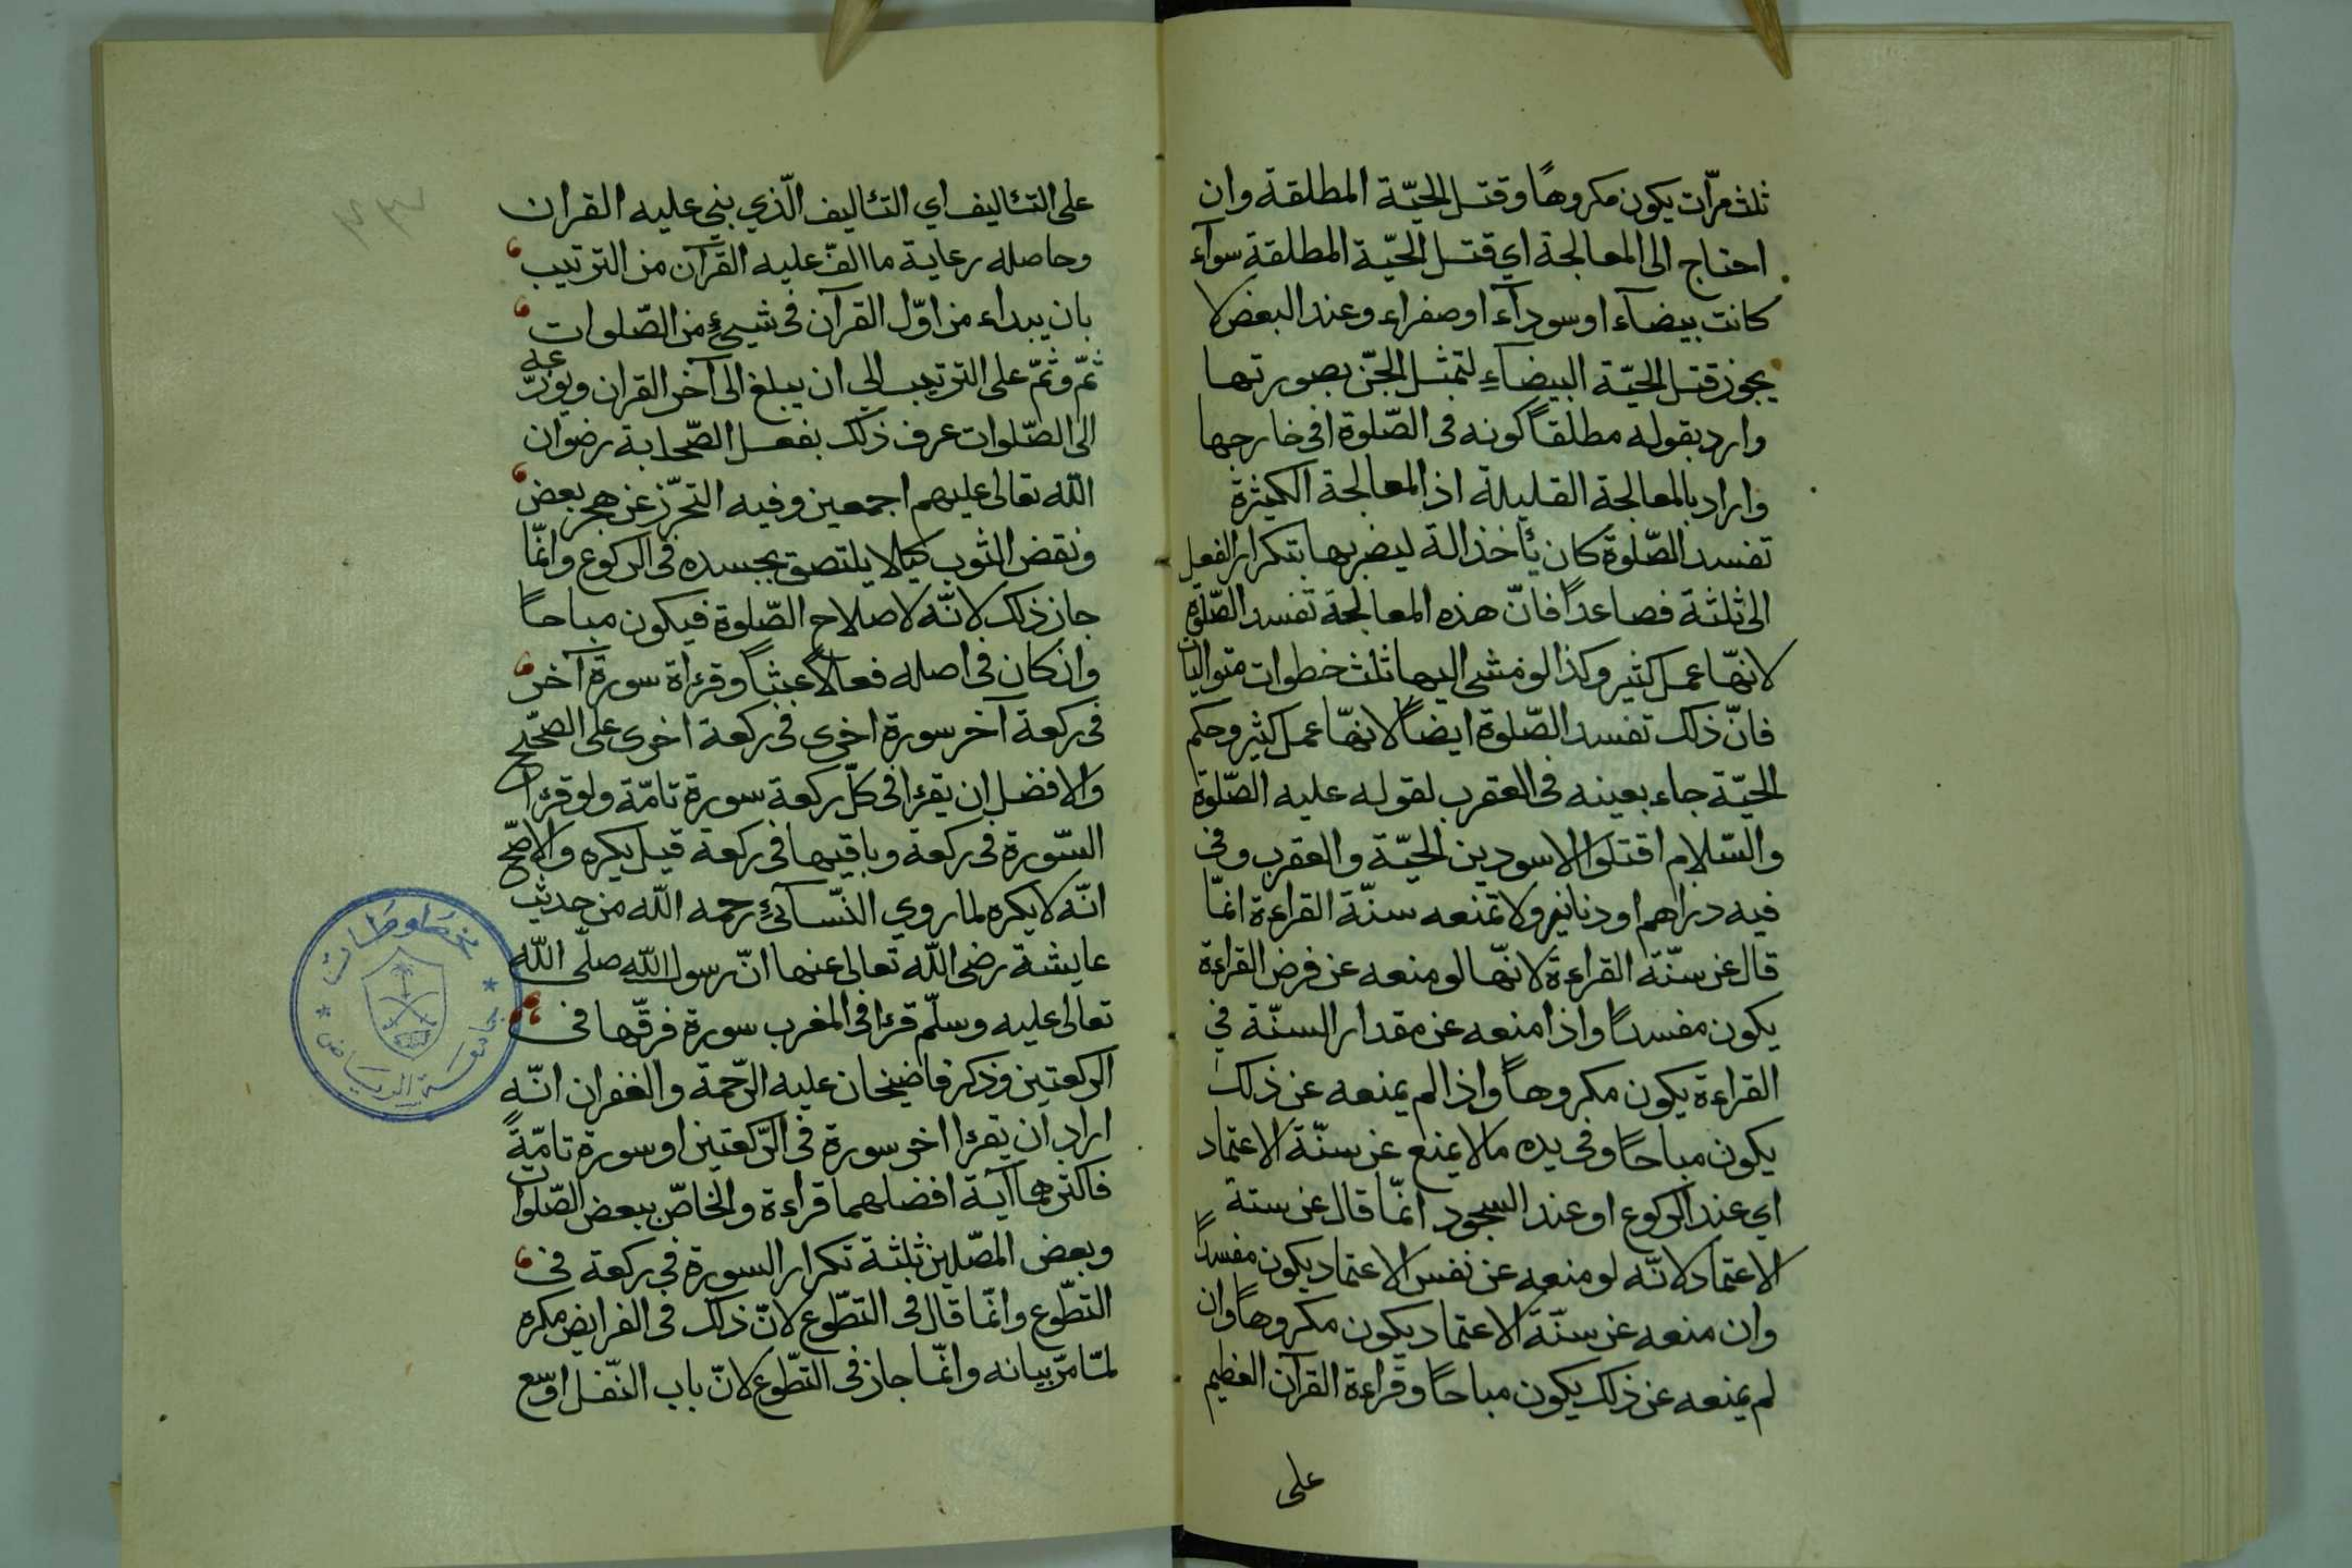 ثلث مرّات يكون مكروهاً وقتل الحيّة المطلقة وان
احتاج الى المعالجة اي قتل الحيّة المطلقة سوآء
كانت بيضآء او سودآء او صفراء وعند البعض لا
يجوز قتل الحيّة البيضآءِ لتمثل الجنّ بصورتها
وارد بقوله مطلقاً كونه فى الصّلوة افى خارجها
واراد بالمعالجة القليلة اذ المعالجة الكيثرة
تفسد الصّلوة كان يأخذ الة ليضربها بتكرار الفعل
الى ثلثة فصاعداً فانّ هذه المعالجة تفسد الصّلوة
لانّها عمل كثير وكذا لو مشى اليها ثلث خطوات متواليات
فانّ ذلك تفسد الصّلوة ايضاً لانّها عمل كثير وحكم
الحيّة جاء بعينه فى العقرب لقوله عليه الصّلوة
والسّلام اقتلوا الاسودين الحيّة والعقرب وفى
فيه دراهم او دنانير ولا تمنعه سنّة القراءة انمّا
قال عن سنّة القراءة لانّها لو منعه عن فرض القراءة
يكون مفسداً واذا منعه عن مقدار السنّة في
القراءة يكون مكروهاً واذا لم يمنعه عن ذلك
يكون مباحاً وفى يده ما لا يمنع عن سنّة الاعتماد
اي عند الركوع او عند السجود انمّا قال عن سنة
الاعتماد لانّه لو منعه عن نفس الاعتماد يكون مفسداً
وان منعه عن سنّة الاعتماد يكون مكروهاً وان
لم يمنعه عن ذلك يكون مباحاً وقراءة القرآن العظيم
على
على التئاليف اي التئاليف الّذي بني عليه القران
وحاصله رعاية ما الفّ عليه القرآن من الترتيب
بان يبداء من اوّل القرآن فى شيءٍ من الصّلوات
ثمّ وثمّ على الترتيب الي ان يبلغ الى آخر القران ويوزّعه
الى الصّلوات عرف ذلك بفعل الصّحابة رضوان
الله تعالى عليهم اجمعين وفيه التحرّز عن هجر بعض
ونفض الثوب كيلا يلتصق بجسده فى الركوع وانمّا
جاز ذلك لانّه لاصلاح الصّلوة فيكون مباحاً
وان كان فى اصله فعلاً عبثاً وقرءاة سورة آخر
فى ركعة آخر سورة اخرى فى ركعة اخرى على الصّحيح
والافضل ان يقرءا فى كلّ ركعة سورة تامّة ولو قرءا
السّورة فى ركعة وباقيها فى ركعة قيل يكره والاصّح
انّه لا يكره لما روي النّسآئءِ رحمه الله من حديث
عايشة رضى الله تعالى عنها انّ رسول الله صلّى الله
تعالى عليه وسلّم قرءا فى المغرب سورة فرقّها فى
الركعتين وذكر قاضيخان عليه الرّحمة والغفران انّه
اراد ان يقرءا اخر سورة فى الرّكعتين او سورة تامّةً
فاكثرهما آية افضلهما قراءة والخاصّ ببعض الصّلوات
وبعض المصّلين ثلثة تكرار السورة في ركعة فى
التطّوع وانمّا قال فى التطّوع لانّ ذلك فى الفرايض مكره
لمّا مرّ بيانه وانمّا جاز فى التطّوع لانّ باب النّفل اوسّع
مخطوطات
جامعة الرياض